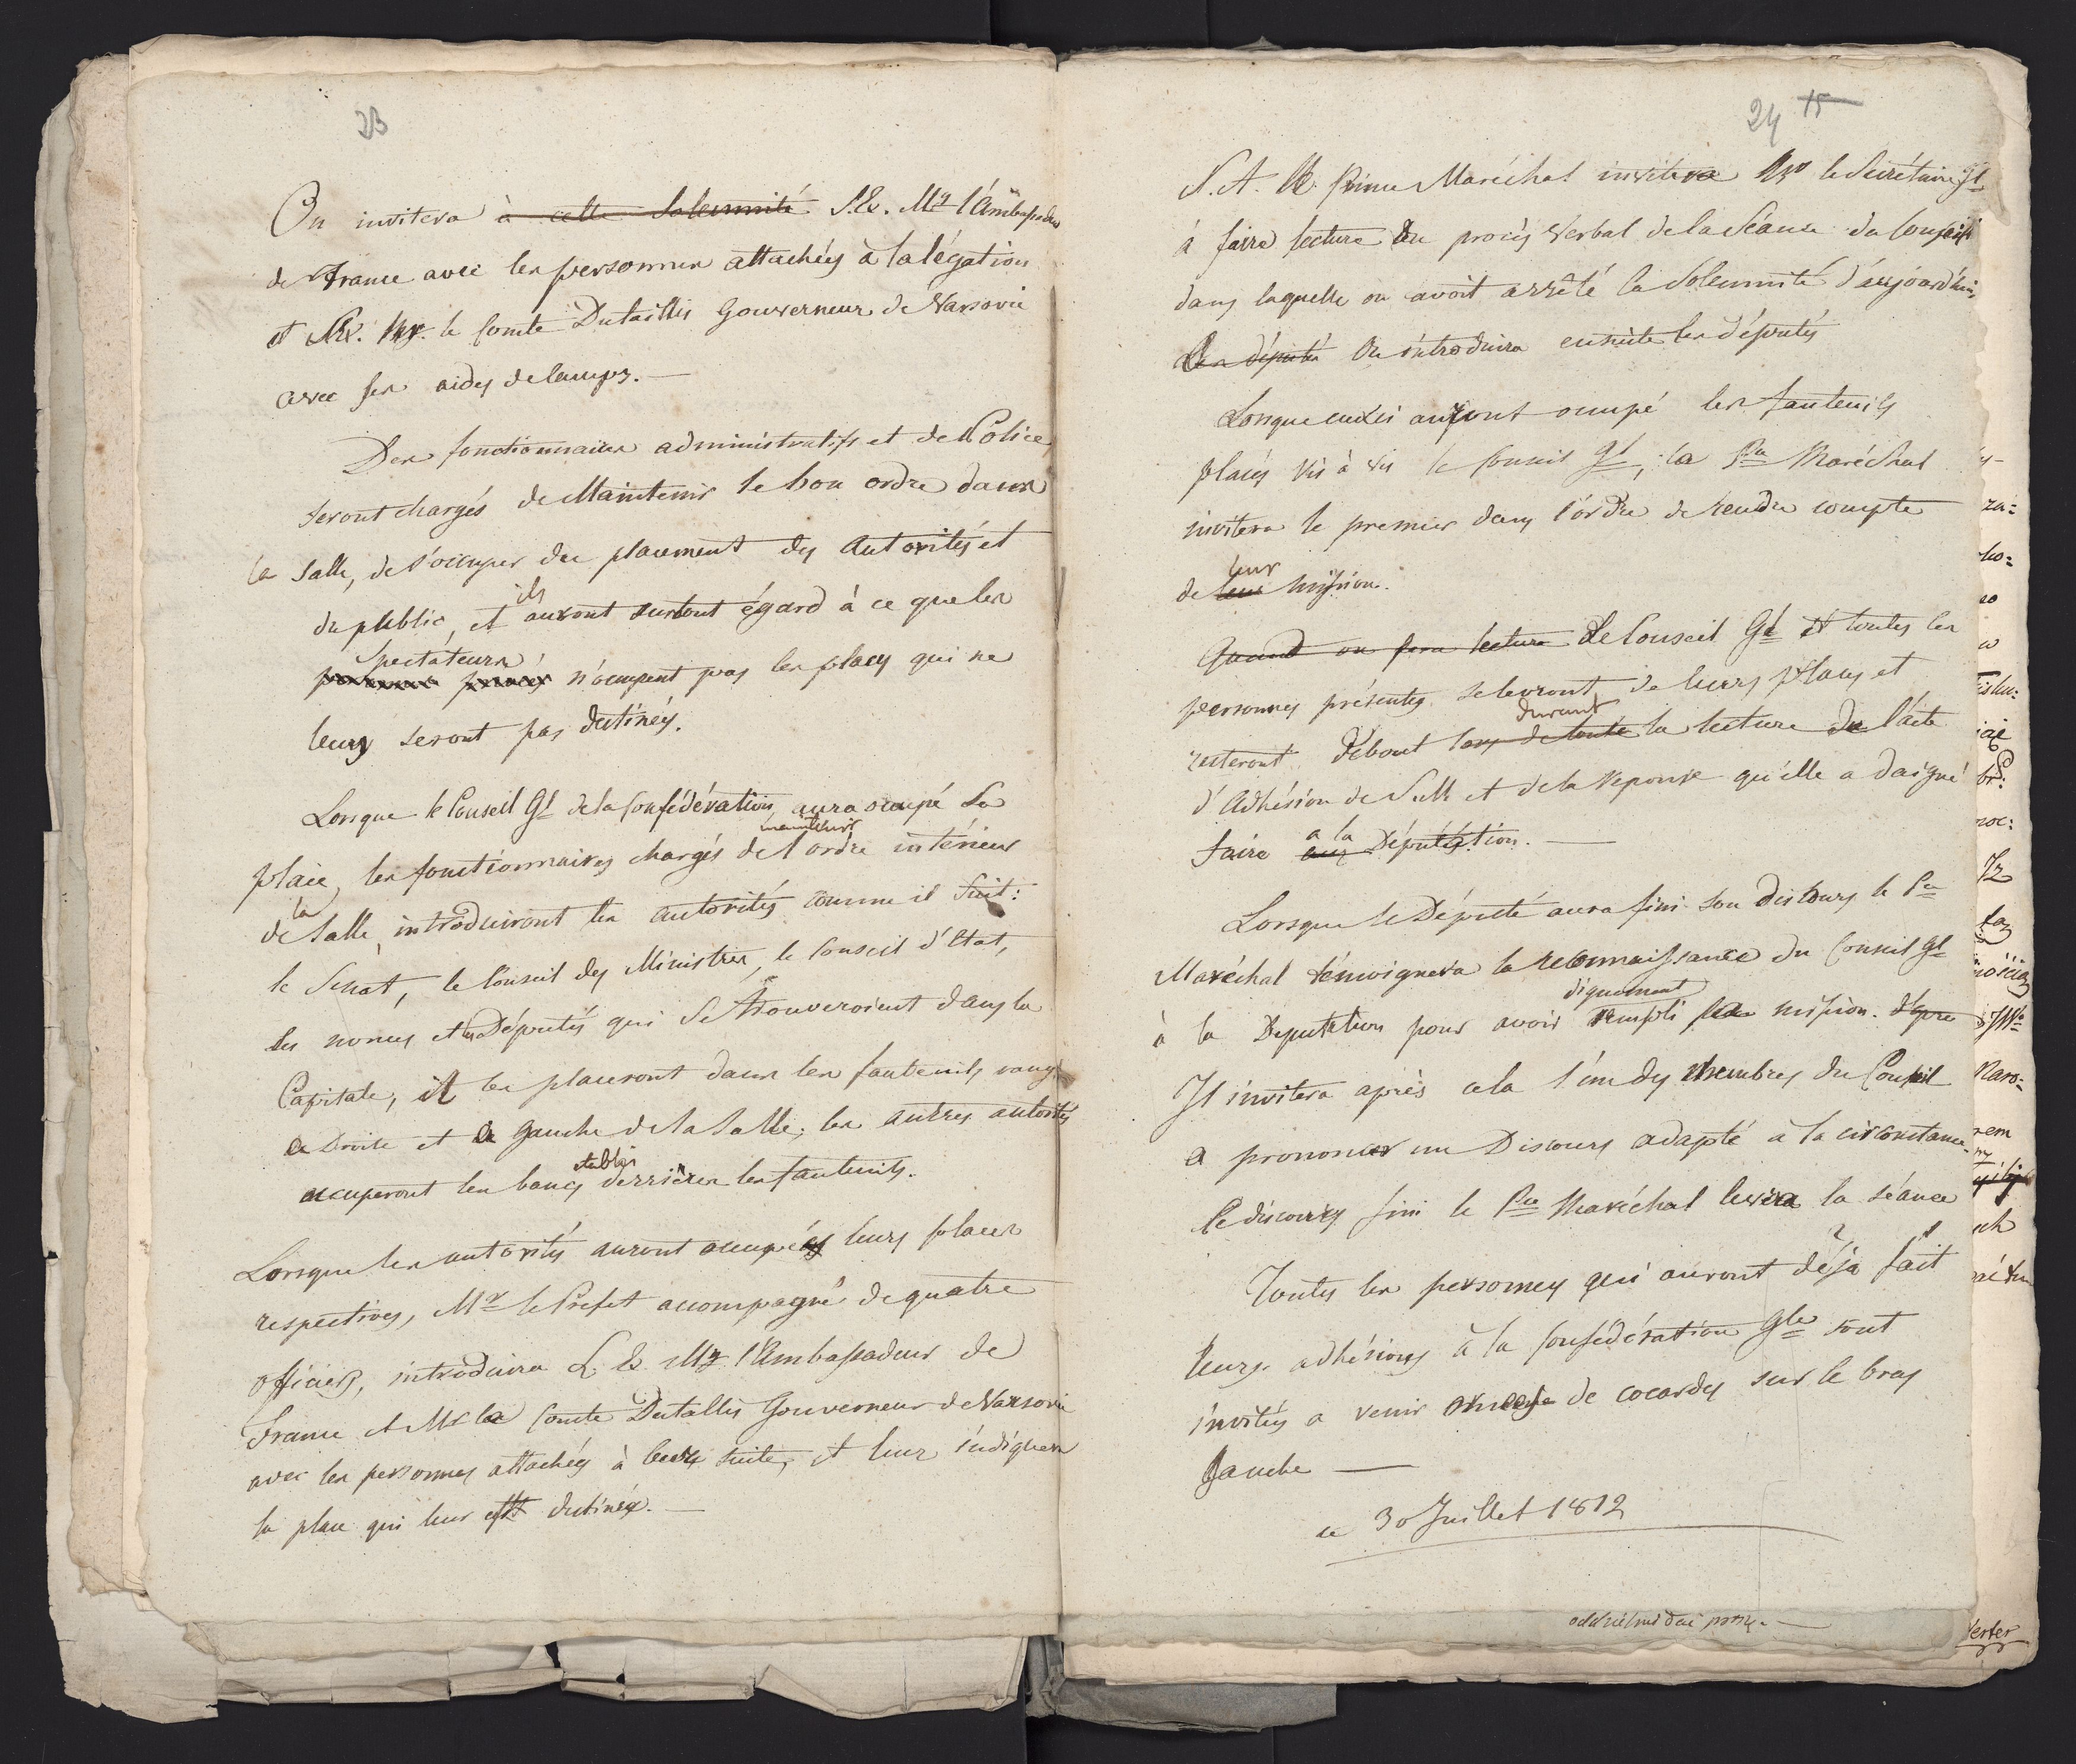 23
On invitera à cette Solemnité S. Ex. Mr l'Ambassadeur
de France avec les personnes attachées à la légation
et S. Ex. Mr. le Comte Dutaillis Gouverneur de Varsovie
avec ses aides de Camps. —
Des fonctionnaires administratifs et de Police
seront chargés de Maintenir le bon ordre dans
la Salle, de s'occuper du placement des Autorités et
ils
du public, et auront surtout égard à ce que les
Spectateurs
n'occupent pas les places qui ne
leurs seront pas destinées.
Lorsque le Conseil Gl de la Confédération aura occupé Sa
maintenir
place, les fonctionnaires chargés de l'ordre intérieur
la
de Salle, introduiront les autorités comme il Suit:
le Senat, le Conseil des Ministres, le Conseil d'Etat,
les nonces et les Députés qui se trouveroient dans la
Capitale, il les placeront dans les fauteuils rangés
a Droite et a gauche de la Salle; les autres autorités
etablis
occuperont les bancs derrières les fauteuils.
Lorsque les autorités auront occupées leurs places
respectives, Mr le Prefet accompagné de quatre
officiers, introduira S. E. Mr l'Ambassadeur de
France et Mr le Comte Dutallis Gouverneur de Varsovie
avec les personnes attachées à leurs suite, et leur indiquera
la place qui leur est destinée. —
24 15
S. A. le Prince Maréchal invitera Mr le Secrétaire Gl
à faire lecture du procès verbal de la Séance du Conseil
dans laquelle on avoit arrêté la Solemnité d'aujourd'hui,
Les députés On introduira ensuite les Députés
Lorsque ceux ci auront occupé les fauteuils
placés vis à vis le Conseil Gl, le Pce Maréchal
invitera le premier dans l'ordre de rendre compte
leur
de leur mission.
Quand on fera lecture Le Conseil Gl et toutes les
personnes présentes se leveront de leurs places et
durant
resteront débout lors de toute la lecture de l'acte
d'Adhésion de S. M. et de la Reponse qu'elle a daigné
a la
faire aux Députation. —
Lorsque le Député aura fini son discours le Pce
Maréchal témoignera la reconnaissance du Conseil Gl
dignement
à la Deputation pour avoir rempli sa mission. Apre
Il invitera après cela l'un des Membres du Conseil
a prononcer un Discours adapté à la circonstance.
Le discours fini le Pce Maréchal levera la séance
Toutes les personnes qui auront déja fait
leurs adhésions à la Confédération Gle sont
invités a venir de cocardes sur le bras
Gauche —
ce 30 Juillet 1812